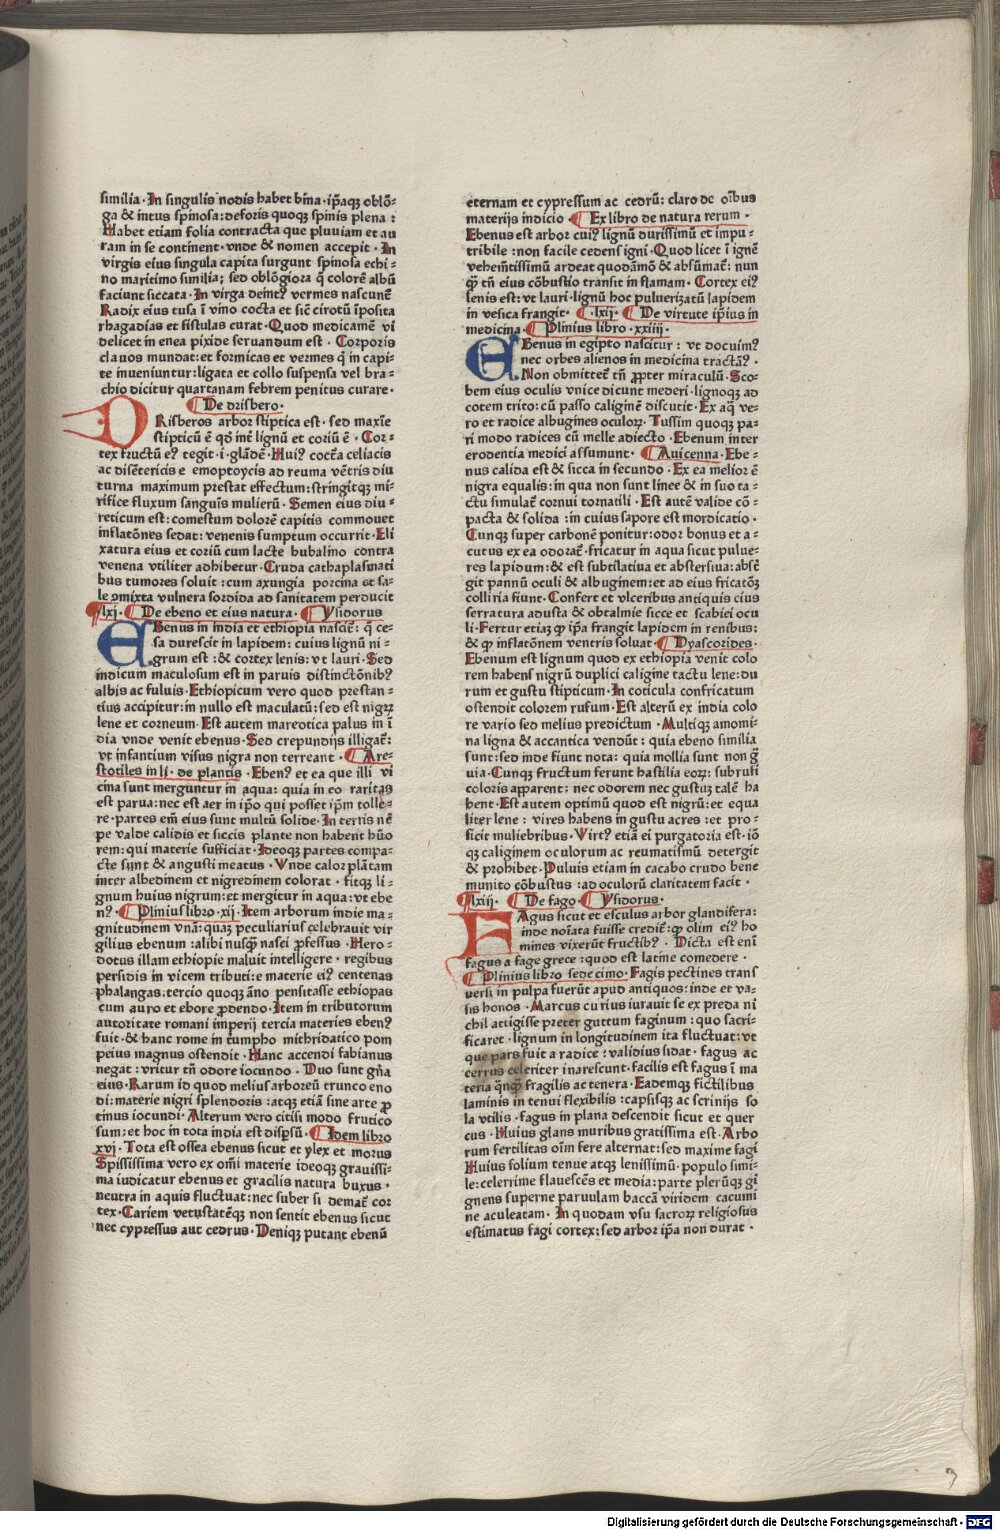 similia. In singulis nodis habet bina. ip̄aqꝫ oblō⸗
ga & intus spinosa: deforis quoqꝫ spinis plena :
Habet etiam folia contracta que pluuiam et au
ram in se continent. vnde & nomen accepit. In
virgis eius singula capita surgunt spinosa echi⸗
no maritimo similia; sed oblōgiora q̄ colorē albū
faciunt siccata. In virga deinꝰ vermes nascunt̄
Radix eius tusa ī vino cocta et sic̄ cirotū īposita
rhagadias et fistulas curat. Quod medicamē vi
delicet in enea pixide seruandum est. Corporis
clauos mundat: et formicas et vermes q̄ in capi⸗
te inueniuntur: ligata et collo suspensa vel bra⸗
chio dicitur quartanam febrem penitus curare.
De drisbero.
DRisberos arbor stiptica est. sed maxīe
stipticū ē qd̓ int̄ lignū et coriū ē. Cor⸗
tex fructū eꝰ tegit. i. glādē. Huiꝰ coctā celiacis
ac disētericis e emoptoycis ad reuma vētris diu
turna maximum prestat effectum: stringitqꝫ mi⸗
rifice fluxum sanguīs mulierū. Semen eius diu⸗
reticum est: comestum dolorē capitis commouet
inflatōnes sedat: venenis sumptum occurrit. Eli
xatura eius et coriū cum lacte bubalino contra
venena vtiliter adhibetur. Cruda cathaplasmati
bus tumores soluit : cum axungia porcina et sa⸗
le ōmixta vulnera sordida ad sanitatem perducit
lxi. De ebeno et eius natura. Ysidorus
EBenus in india et ethiopia nascit̄: q̄ ce⸗
sa durescit in lapidem: cuius lignū ni⸗
grum est : & cortex lenis: vt lauri. Sed
indicum maculosum est in paruis distinctōnibꝰ
albis ac fuluis. Ethiopicum vero quod prestan⸗
tius accipitur: in nullo est maculatū: sed est nigrꝫ
lene et corneum. Est autem mareotica palus in ī
dia vnde venit ebenus. Sed crepundijs illigat̄:
vt infantium visus nigra non terreant. Are⸗
stotiles in li. de plantis. Ebenꝰ et ea que illi vi
cina sunt merguntur in aqua: quia in eo raritas
est parua: nec est aer in ip̄o qui posset ip̄m tolle⸗
re. partes em̄ eius sunt multū solide. In terris nē
pe valde calidis et siccis plante non habent hūo
rem: qui materie sufficiat. Ideoqꝫ partes compa⸗
cte sunt & angusti meatus. Vnde calor plātam
inter albedinem et nigredinem colorat. fitqꝫ li⸗
gnum huius nigrum: et mergitur in aqua: vt ebe
nꝰ. Plinius libro. xij. Item arborum indie ma⸗
gnitudinem vnā: quaꝫ peculiarius celebrauit vir
gilius ebenum : alibi nusqꝫ nasci p̄fessus. Hero⸗
dotus illam ethiopie maluit intelligere. regibus
persidis in vicem tributi: e materie eiꝰ centenas
phalangas: tercio quoqꝫ āno pensitasse ethiopas
cum auro et ebore ꝓdendo. Item in tributorum
autoritate romani imperij tercia materies ebenꝰ
fuit. & hanc rome in tūmpho mithridatico pom
peius magnus ostendit. Hanc accendi fabianus
negat : vritur tn̄ odore iocundo. Duo sunt gn̄a
eius. Rarum id quod melius arboreū trunco eno
di: materie nigri splendoris : atqꝫ etiā sine arte ꝓ
tinus iocundi. Alterum vero citisi modo frutico
sum: et hoc in tota india est dispsū. Idem libro
xvi. Tota est ossea ebenus sicut et ylex et morus
Spississima vero ex om̄i materie ideoqꝫ grauissi⸗
ma iudicatur ebenus et gracilis natura buxus.
neutra in aquis fluctuat: nec suber si demat̄ cor
tex. Cariem vetustatēqꝫ non sentit ebenus sicut
nec cypressus aut cedrus. Deniqꝫ putant ebenū
eternam et cypressum ac cedrū: claro de oībus
materijs indicio Ex libro de natura rerum.
Ebenus est arbor cuiꝰ lignū durissimū et impu⸗
tribile : non facile cedens igni. Quod licet ī ignē
vehemētissimū ardeat quodāmō & absūmat̄: nun
qꝫ tn̄ eius cōbustio transit in flamam. Cortex eiꝰ
lenis est: vt lauri. lignū hoc puluerizatū lapidem
in vesica frangit. lxii. De virtute ip̄ius in
medicina. Plinius libro. xxiiij.
EBenus in egipto nascitur : vt docuimꝰ
nec orbes alienos in medicina tractāꝰ.
Non obmittet̄ tn̄ ꝓpter miraculū. Sco⸗
bem eius oculis vnice dicunt mederi. lignoqꝫ ad
cotem trito: cū passo caliginē discutit. Ex aq̄ ve⸗
ro et radice albugines oculoꝝ. Tussim quoqꝫ pa⸗
ri modo radices cū melle adiecto. Ebenum inter
erodentia medici assumunt. Auicenna. Ebe⸗
nus calida est & sicca in secundo. Ex ea melior ē
nigra equalis: in qua non sunt linee & in suo ta⸗
ctu simulat̄ cornui tornatili. Est autē valide cō⸗
pacta & solida : in cuius sapore est mordicatio.
Cunqꝫ super carbonē ponitur: odor bonus et a⸗
cutus ex ea odorat̄. fricatur in aqua sicut pulue⸗
res lapidum: & est subtilatiua et abstersiua: abst̄
git pannū oculi & albuginem: et ad eius fricatōꝫ
colliria fiunt. Confert et vlceribus antiquis eius
serratura adusta & obtalmie sicce et scabiei ocu
li. Fertur etiaꝫ qꝫ ip̄a frangit lapidem in renibus:
& qꝫ inflatōnem ventris soluat. Dyascorides.
Ebenum est lignum quod ex ethiopia venit colo
rem habens nigrū duplici caligine tactu lene: du
rum et gustu stipticum. In coticula confricatum
ostendit colorem rufum. Est alterū ex india colo
re vario sed melius predictum. Multiqꝫ amomi⸗
na ligna & accantica vendūt : quia ebeno similia
sunt: sed inde fiunt nota: quia mollia sunt non ḡ
uia. Cunqꝫ fructum ferunt hastilia eoꝝ: subrufi
coloris apparent: nec odorem nec gustuꝫ talē ha
bent. Est autem optimū quod est nigrū: et equa
liter lene : vires habens in gustu acres : et pro⸗
ficit muliebribus. Virtꝰ etiā ei purgatoria est. iō
qꝫ caliginem oculorum ac reumatismū detergit
& prohibet. Puluis etiam in cacabo crudo bene
munito cōbustus : ad oculorū claritatem facit.
lxiij. De fago. Ysidorus.
FAgus sicut et esculus arbor glandifera:
inde noīata fuisse credit̄: qꝫ olim eiꝰ ho
mines vixerūt fructibꝰ. Dicta est enī
fagus a fage grece : quod est latine comedere.
Plinius libro sedecimo. Fagis pectines trans
uersi in pulpa fuerūt apud antiquos: inde et va⸗
sis honos. Marcus curius iurauit se ex preda ni
chil attigisse preter guttum faginum : quo sacri⸗
ficaret. lignum in longitudinem ita fluctuat: vt
que pars fuit a radice : validius sidat. fagus ac
cerrus celeriter inarescunt. facilis est fagus ī ma
teria q̄nqꝫ fragilis ac tenera. Eademqꝫ fictilibus
laminis in tenui flexibilis : capsisqꝫ ac scrinijs so
la vtilis. fagus in plana descendit sicut et quer
cus. Huius glans muribus gratissima est. Arbo
rum fertilitas oīm fere alternat: sed maxime fagi
Huius folium tenue atqꝫ lenissimū. populo simi⸗
le: celerrime flauescēs et media: parte plerūqꝫ gi
gnens superne paruulam baccā viridem cacumi
ne aculeatam. In quodam vsu sacroꝝ religiosus
estimatus fagi cortex: sed arbor ip̄a non durat.
Digitalisierung gefördert durch die Deutsche Forschungsgemeinschaft - DFG